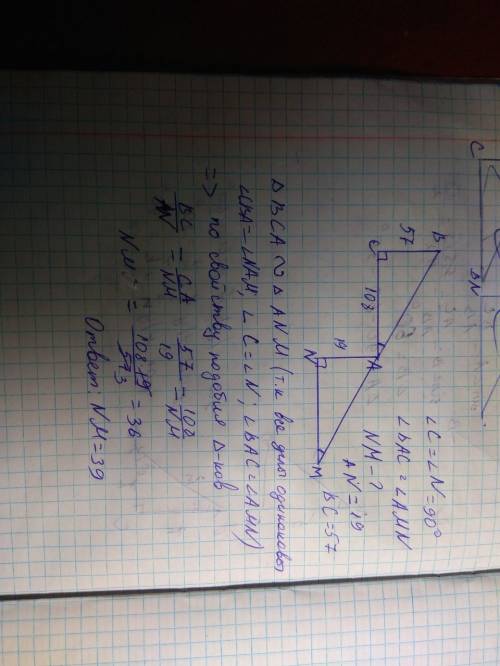 C
BN
B
57
C
108
A
19
N
M
∠C=∠N=90°
∠BAC=∠AMN
NM-?
AN=19
BC=57
△BCA ∾ △ANM (т.к все углы одинаковы
∠CBA=∠NAM; ∠C=∠N; ∠BAC=∠AMN)
=> по свойству подобия △-ков
BC/AN = CA/NM 57/19 = 108/NM
NM = 108·19/57 3 = 36
Ответ: NM=39